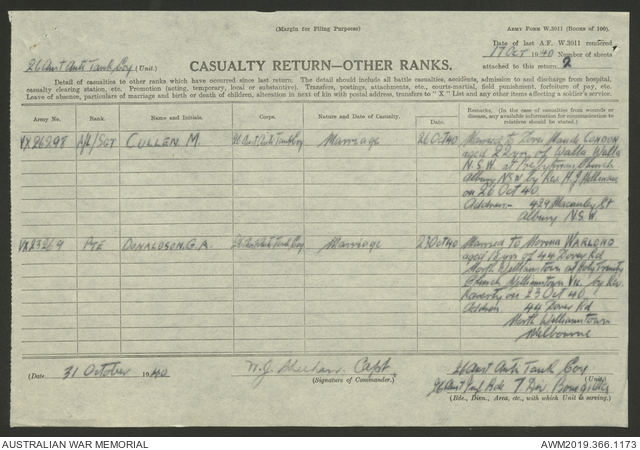 (Margin for Filing Purposes)
ARMY FORM W.3011 (BOOKS OF 100).
Date of last A.F. W.3011 rendered
17 Oct 1940 Number of sheets
attached to this return 2
26 Aust Anti Tank Coy (Unit.)
CASUALTY RETURN—OTHER RANKS.
Detail of casualties to other ranks which have occurred since last return. The detail should include all battle casualties, accidents, admission to and discharge from hospital,
casualty clearing station, etc. Promotion (acting, temporary, local or substantive). Transfers, postings, attachments, etc., courts-martial, field punishment, forfeiture of pay, etc.
Leave of absence, particulars of marriage and birth or death of children, alteration in next of kin with postal address, transfers to "X" List and any other items affecting a soldier's service.
Army No. Rank. Name and Initials. Corps. Nature and Date of Casualty. Date. Remarks, (In the case of casualties from wounds or
disease, any available information for communication to
relatives should be stated.)
A/Sgt CULLEN M. 26 Aust Anti Tank Coy Marriage 26 Oct 40 Married to Maude LONDON
aged 22 yrs of Walla Walla
N.S.W. at Presbyterian Church
Albury NSW by Rev. H J
on 26 Oct 40
Address- 429 Macauley St
Albury N.S.W.
PTE DONALDSON, G.A. 26 Aust Anti Tank Coy Marriage 23 Oct 40 Married to Norma
aged 18 yrs of 44 Dover Rd
North Williamstown at Holy Trinity
Church Williamstown Vic. by Rev
on 23 Oct 40
Address 44 Dover Rd
North Williamstown
Melbourne
(Date. 31 October 1940 W.J. Capt. 26 Aust Anti Tank Coy
(Signature of Commander.) (Unit)
26 Aust Inf Bde 7 Div Bonegilla
(Bde., Divn., Area, etc., with which Unit is serving.)
AUSTRALIAN WAR MEMORIAL AWM2019.366.1173